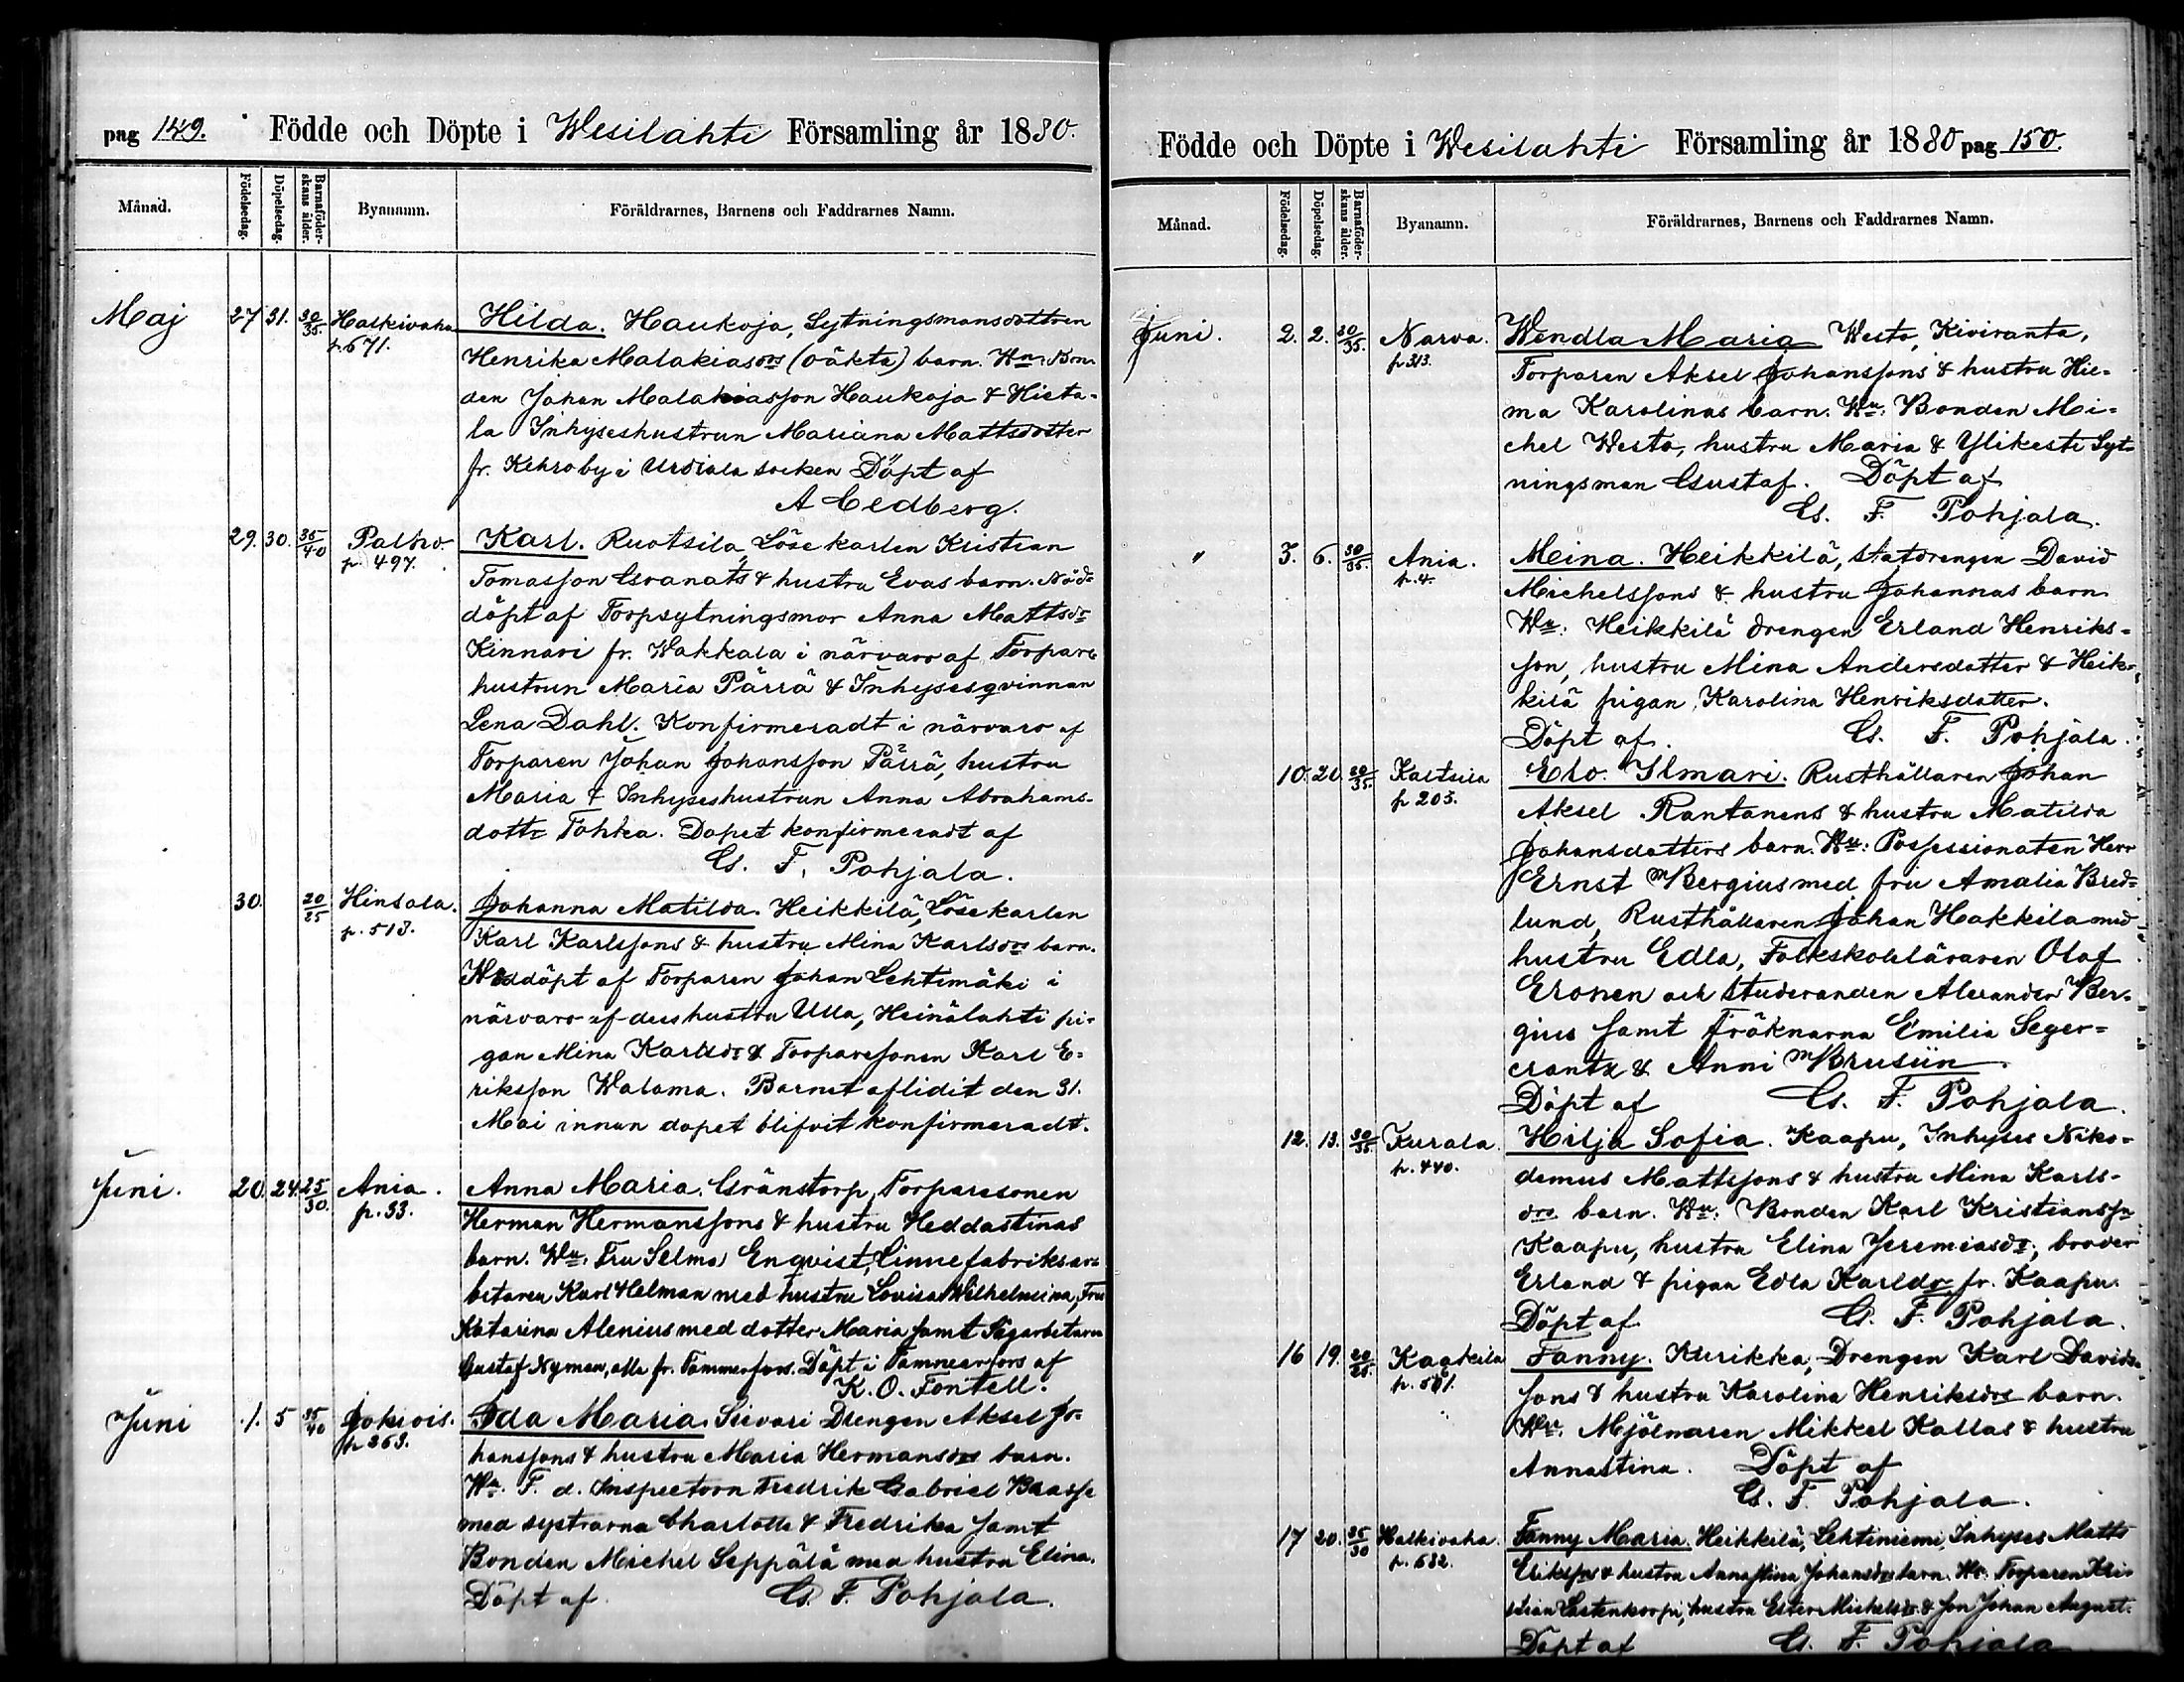 pag 149. Födde och Döpte i Wesilahti Församling år 1880.
Månad. Födelsedag. Döpelsedag. Barnaföder-skans ålder. Byanamn. Föräldrarnes, Barnens och Faddrarnes Namn.
Maj 27 31. 30/35 Halkivaha Hilda. Haukoja, Sytningsmansdottren
p. 671. Henrika Malakiasdrs (oäkta) barn. Wn: Bon-
den Johan Malakiasson Haukoja & Hieta-
la Inhyseshustrun Mariana Mattsdotter
fr. Kehro by i Urdiala socken Döpt af
A Cedberg.
29. 30. 35/40 Palho Karl. Ruotsila, Lösekarlen Kristian
p. 497. Tomasson Granats & hustru Evas barn. Nöd-
döpt af Torpsytningsmor Anna Mattsdr
Kinnari fr. Wakkala i närvaro af Torpare
hustrun Maria Pärrä & Inhysesqvinnan
Lena Dahl. Konfirmeradt i närvaro af
Torparen Johan Johansson Pärrä, hustru
Maria & Inhyseshustrun Anna Abrahams-
dottr Tohka. Dopet konfirmeradt af
G. F. Pohjala.
30. 20/25 Hinsala. Johanna Matilda. Heikkilä, Lösekarlen
p. 513. Karl Karlssons & hustru Mina Karlsdrs barn.
Nöddöpt af Torparen Johan Lehtimäki i
närvaro af dess hustru Ulla, Heinälahti pi-
gan Mina Karlsdr & Torparesonen Karl E-
riksson Walama. Barnet aflidit den 31.
Mai innan dopet blifvit konfirmeradt.
Juni. 20. 24. 25/30. Ania. Anna Maria. Gränstorp, Torparesonen
p. 33. Herman Hermanssons & hustru Heddastinas
barn. Wn: Fru Selma Enqvist, Linnefabriksar-
betaren Karl Helman med hustru Lovisa Wilhelmina, Fru
Katarina Alenius med dotter Maria samt Sågarbetaren
Gustaf Nyman, alla fr. Tammerfors. Döpt i Tammerfors af
K. O. Fontell.
Juni 1. 5 35/40 Jokiois. Ida Maria. Siivari Drengen Aksel Jo-
p 363. hanssons & hustru Maria Hermansdrs barn.
Wn. F. d. Inspectorn Fredrik Gabriel Baasse
med systrarna Charlotta & Fredrika samt
Bonden Michel Seppälä med hustru Elina.
Döpt af G. F. Pohjala.
Födde och Döpte i Wesilahti Församling år 1880 pag 150.
Månad. Födelsedag. Döpelsedag. Barnaföder-skans ålder. Byanamn. Föräldrarnes, Barnens och Faddrarnes Namn.
Juni. 2. 2. 30/35. Narva. Wendla Maria Westo, Kiviranta,
p 313. Torparen Aksel Johanssons & hustru Hil-
ma Karolinas barn. Wn: Bonden Mi-
chel Westo, hustru Maria & Ylikesti Syt-
ningsman Gustaf. Döpt af
G. F. Pohjala.
" 3. 6. 30/35. Ania. Meina. Heikkilä, Statdrengen David
p. 4. Michelssons & hustru Johannas barn
Wn: Heikkilä drengen Erland Henriks-
son, hustru Mina Andersdotter & Heik-
kilä pigan Karolina Henriksdotter.
Döpt af. G. F. Pohjala.
10. 20. 30/35. Kaltsila Elo Ilmari. Rusthållaren Johan
p 205. Aksel Rantanens & hustru Matilda
Johansdotters barn. Wn: Possessionaten Herr
Ernst Bergius med fru Amalia Bred-
lund, Rusthållaren Johan Hakkila med
hustru Edla, Folkskoleläraren Olof
Eronen och Studeranden Alexander Ber-
gius samt Fröknarna Emilia Seger-
crantz & Anni Brusiin
Döpt af G. F. Pohjala.
12. 13. 30/35. Kurala. Hilja Sofia. Kaapu, Inhyses Niko-
p. 440. demus Mattssons & hustru Mina Karls-
drs barn. Wn: Bonden Karl Kristianssn
Kaapu, hustru Elina Jeremiasdr, broder
Erland & pigan Edla Karlsdr fr. Kaapu.
Döpt af G. F. Pohjala.
16 19. 20/25. Kaakila Fanny. Kurikka, Drengen Karl Davids-
sons & hustru Karolina Henriksdrs barn.
Wn: Mjölnaren Mikkel Kallas & hustru
Annastina. Döpt af
G. F. Pohjala.
17 20. 25/30 Halkivaha. Fanny Maria. Heikkilä, Lehtiniemi, Inhyses Matts
p. 682. Erikssons & hustru Annastina Johansdrs barn. Wn: Torparen Kri-
stian Lastenkorpi, hustru Ester Michelsdr & son Johan August.
Döpt af G. F. Pohjala